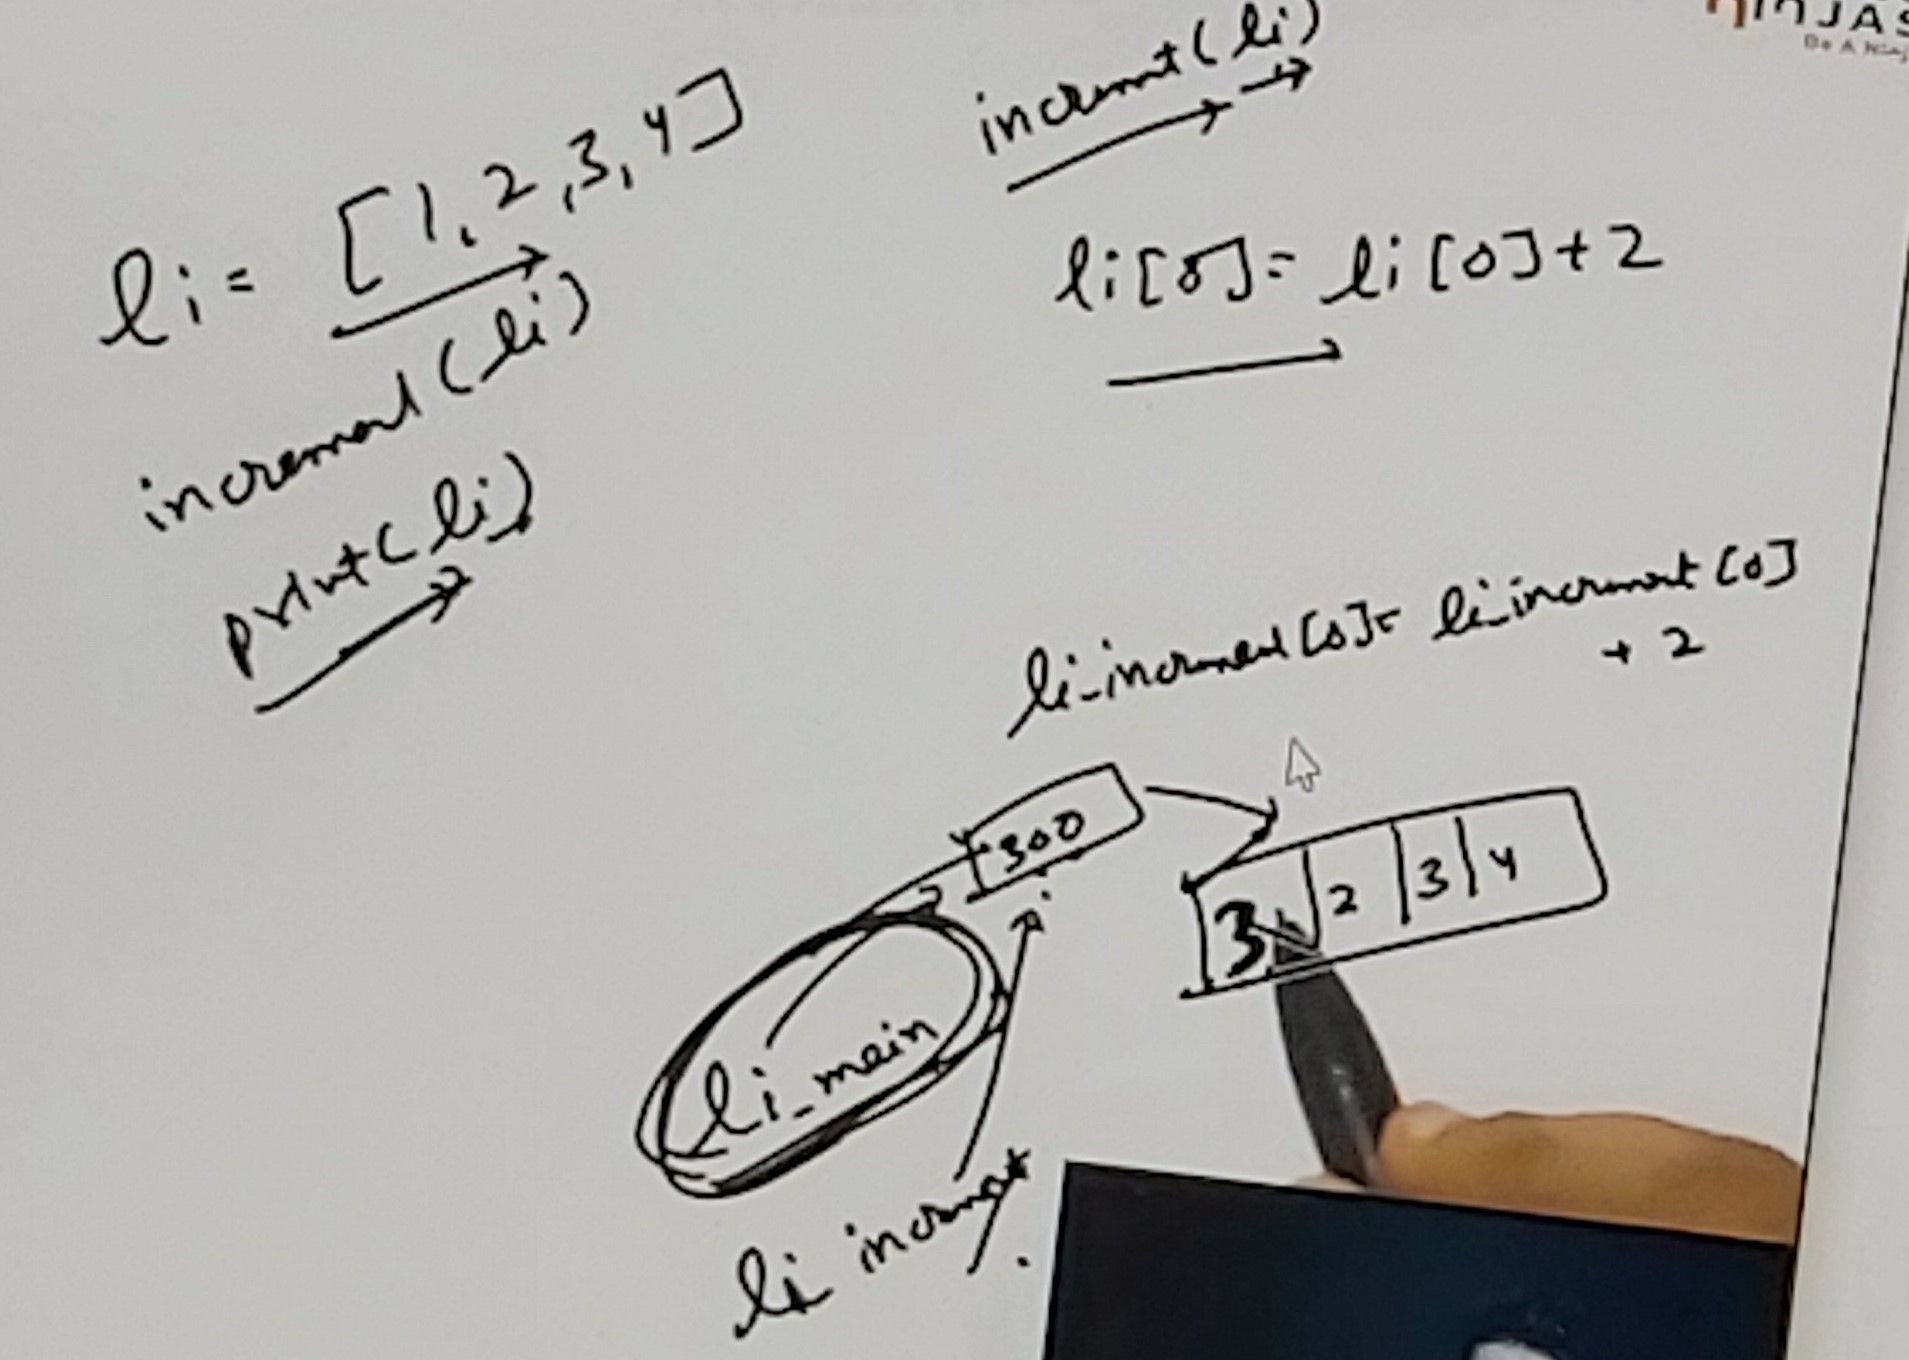 NINJAS
li = [1, 2, 3, 4]
increment(li)
print(li)
increment(li)
li[0] = li[0] + 2
li_increment[0] = li_increment[0]
+ 2
300
3 2 3 4
li_main
li increment